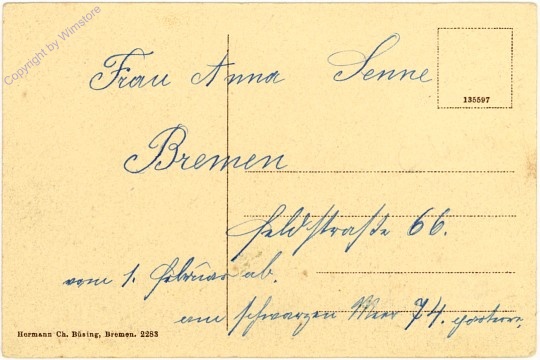 Copyright by Wimstore
Frau Anna Senne
135597
Bremen
Feldstraße 66.
vom 1. Februar ab.
am schwarzen Meer 74.
Hermann Ch. Büsing, Bremen. 2283